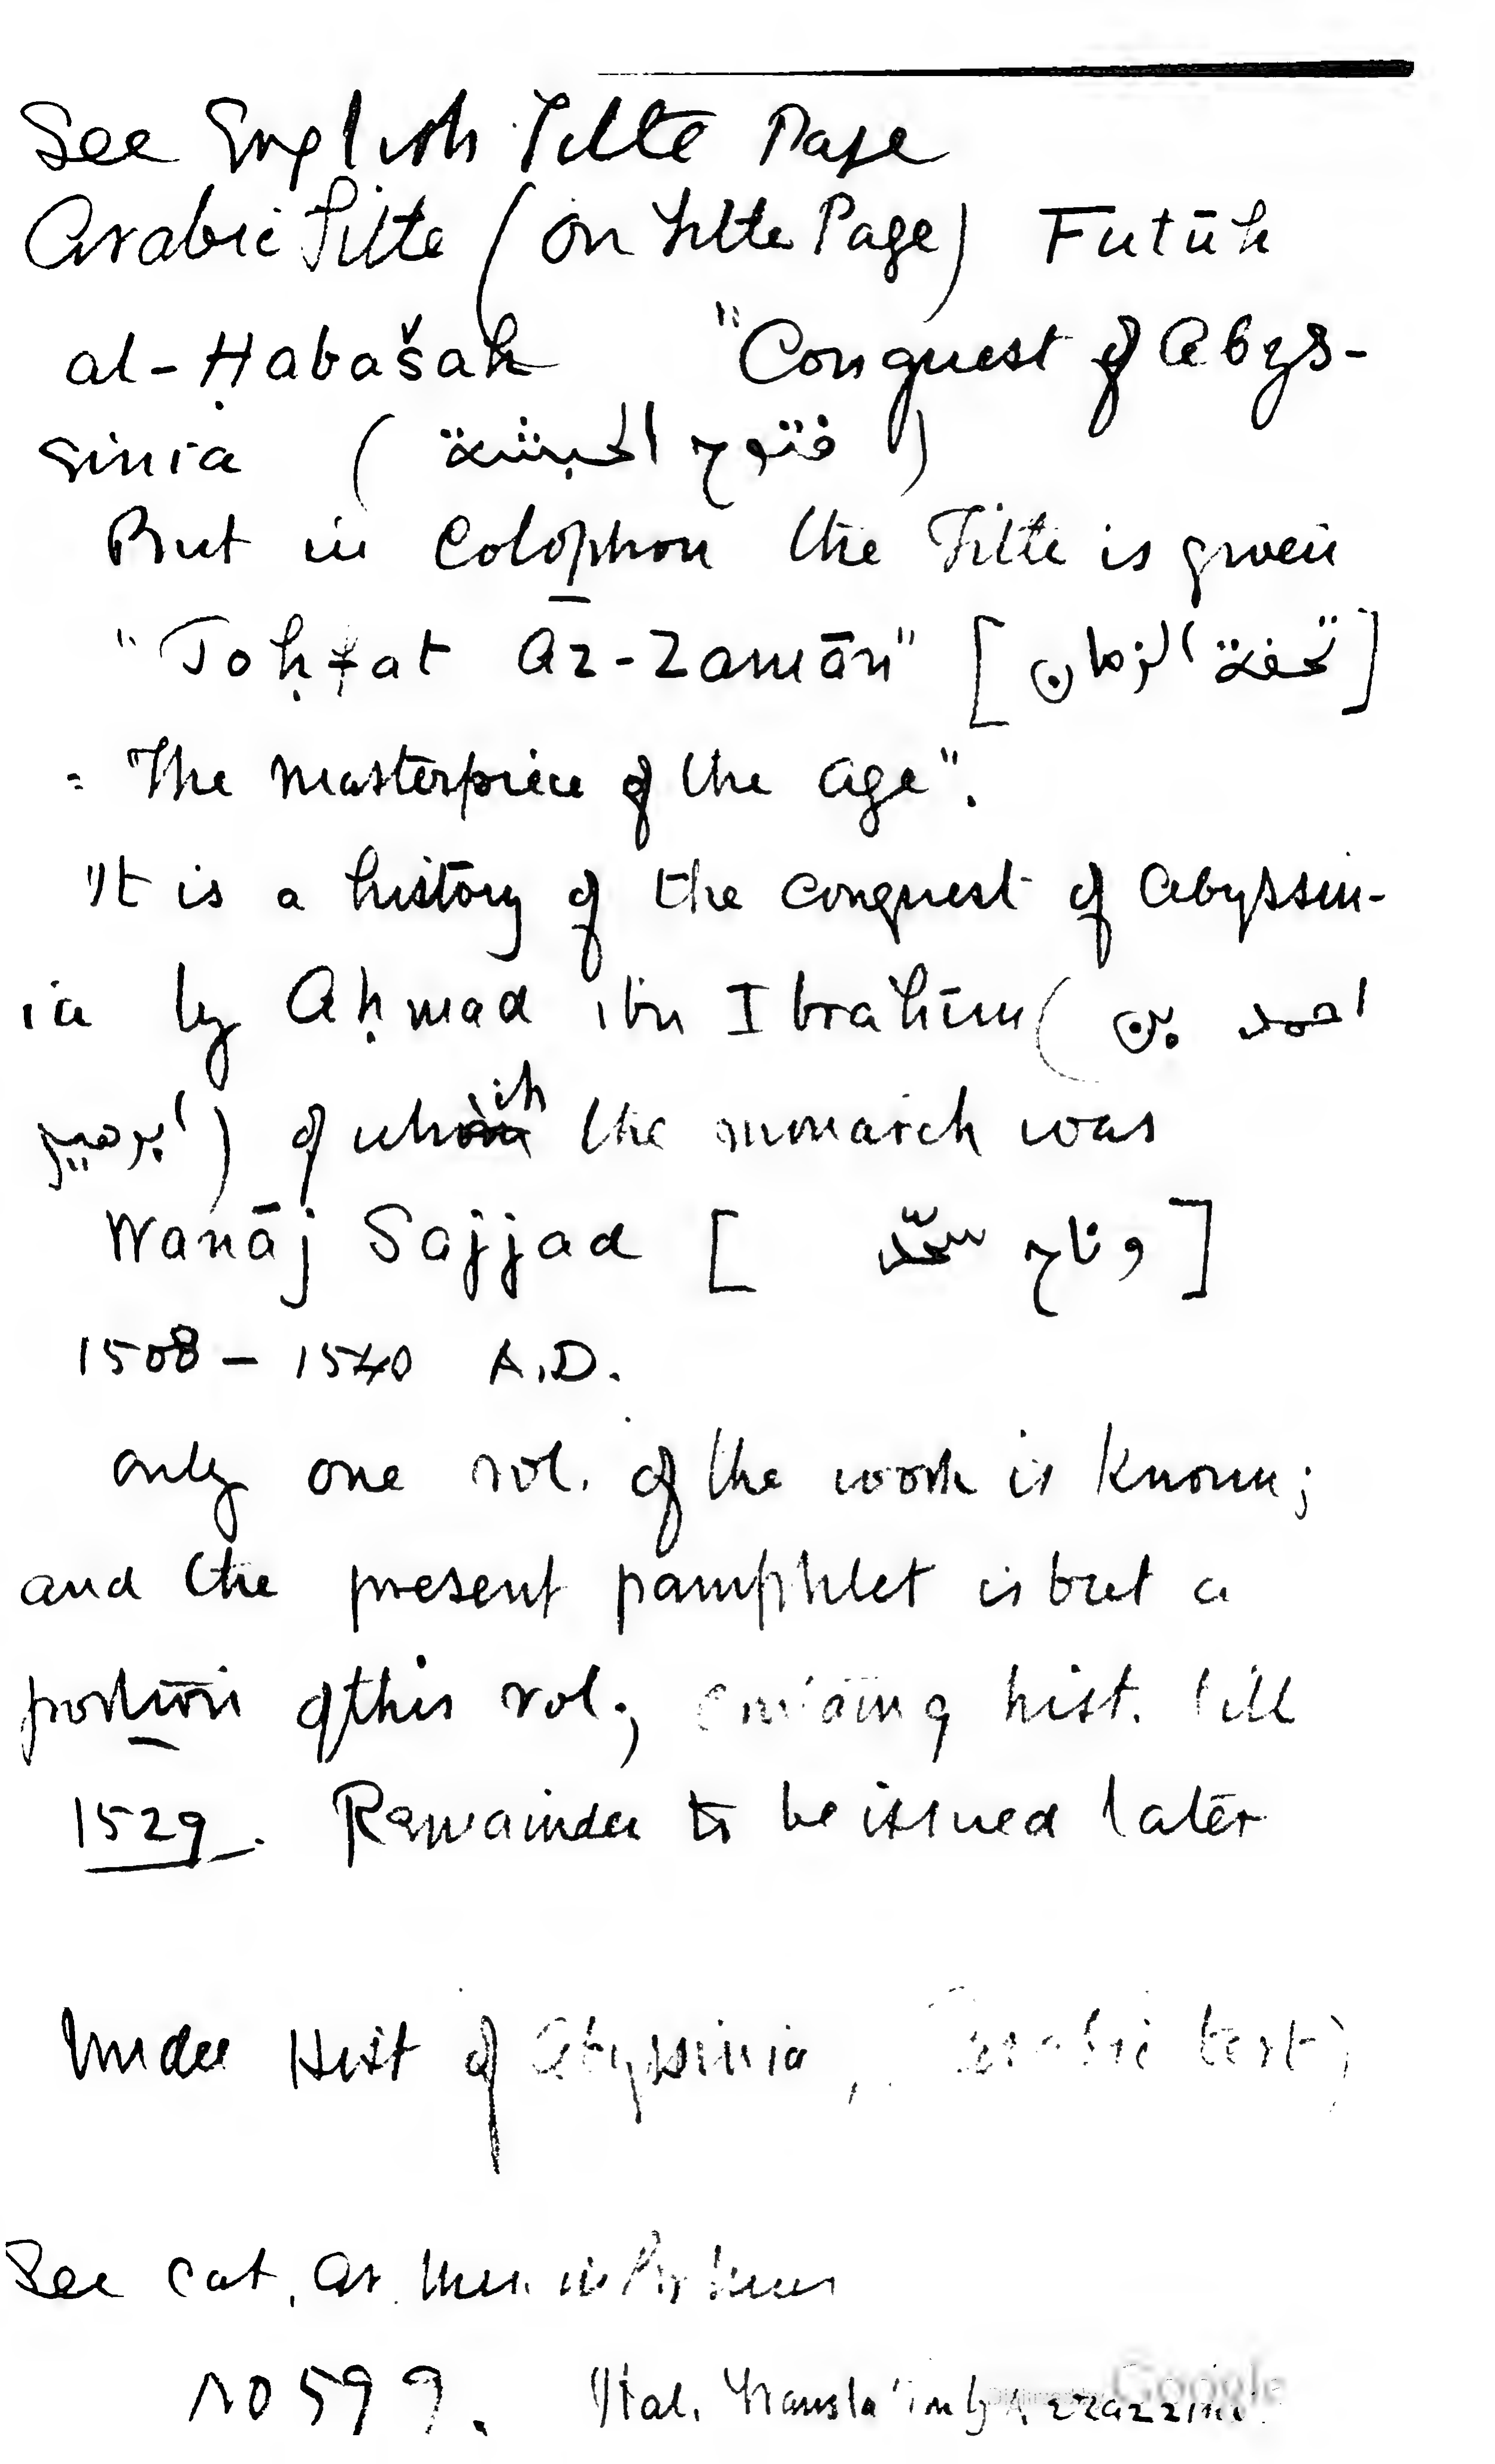 See English Title Page
Arabic Title (on Title Page) Futūh
al-Ḥabašah "Conquest of Abys-
sinia (فتوح الحبشة)
But in Colophon the Title is given
"Toḥfat Az-Zamān" [تحفة الزمان]
= "The masterpiece of the age".
It is a history of the conquest of Abyssin-
ia by Aḥmad ibn Ibrahīm (احمد بن
ابرهيم) of which the monarch was
Wanāj Sajjad [وناج سجّد]
1508 – 1540 A.D.
only one vol. of the work is known;
and the present pamphlet is but a
portion of this vol; containing hist. till
1529. Remainder to be issued later
Under Hist of Abyssinia, Arabic text)
See Cat. Ar. Mus.
No 599. Ital. Translation by Nerazzini.
Google